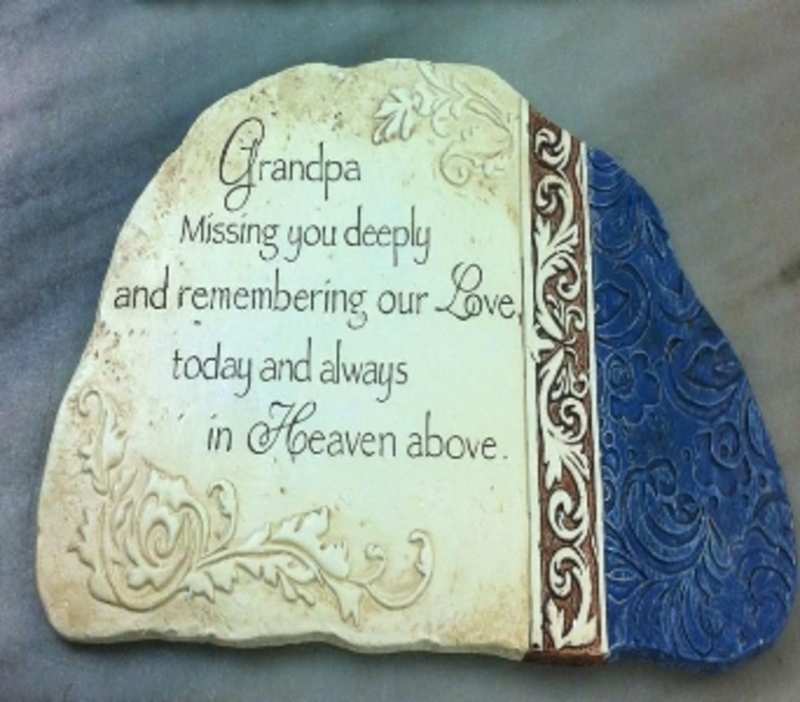 Grandpa
Missing you deeply
and remembering our Love,
today and always
in Heaven above.